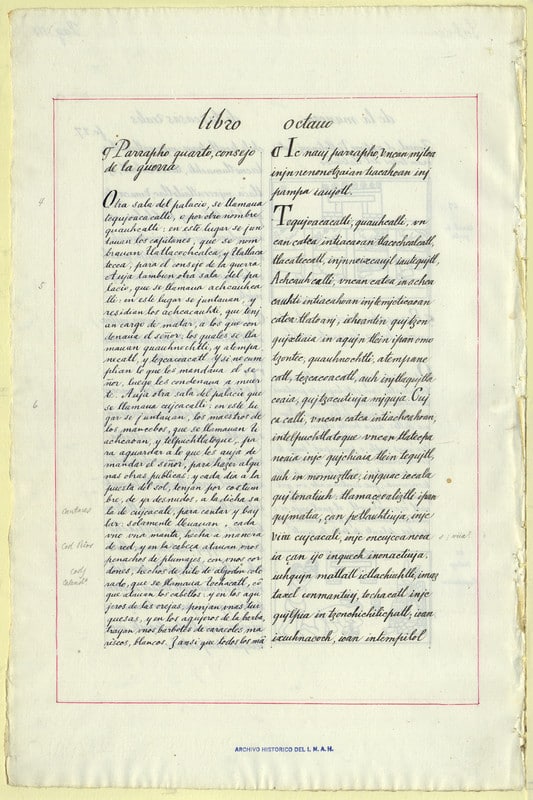 libro octauo
¶ Parrapho quarto, consejo
de la guerra
Otra sala del palacio, se llamaua
tequjoacacalli, o por otro nombre
quauhcalli: en este lugar se jun
tauan los capitanes, que se nom
brauan tlatlacochcalca, y tlatlaca
teca, para el consejo de la guerra.
Auja tambien otra sala del pa
lacio, que se llamaua achcauhca
lli: en este lugar se juntauan, y
residian los achcacauhti, que tenj
an cargo de matar, a los que con
denaua el señor, los quales se lla
mauan quauhnochtli, y atempa
necatl, y tezcacoacatl. Y si no cum
plian lo que les mandaua el se
ñor, luego les condenaua a muer
te. Auja otra sala del palacio que
se llamaua cujcacali: en este lu
gar se juntauan, los maestros de
los mancebos, que se llamauan ti
achcaoan, y telpuchtlatoque, pa
ra aguardar a lo que les auja de
mandar el señor, para hazer algu
nas obras publicas: y cada dia a la
puesta del sol, tenjan por costum
bre, de yr desnudos, a la dicha sa
la de cujcacali, para cantar y bay
lar: solamente lleuauan, cada
vno vna manta, hecha a manera
de red, y en la cabeça atauan vnos
penachos de plumajes, con vnos cor
dones, hechos de hilo de algodon colo
rado, que se llamaua tochacatl, cõ
que atauan los cabellos: y en los agu
jeros de las orejas, ponjan vnas tur
quesas, y en los agujeros de la barba,
trayan, vnos barbotes de caracoles ma
riscos, blancos. Y ansi que todos los mã
¶ Ic nauj parrapho, vncan mjtoa
injn nenonotzaian tiacahoan inj
pampa iaujotl.
Tequjoacacalli, quauhcalli, vn
can catca intiacaoan tlacochcalcatl,
tlacatecatl, injnneixcaujl iautequjtl,
Achcauhcalli, vncan catca in achca
cauhti intiacahoan injtemjcticaoan
catca tlatoanj, icheantin qujtzon
qujxtiaia in aqujn tlein ipan omo
tzontec, quauhnochtli, atempane
catl, tezcacoacatl, auh intlaqujtla
coaia, qujtzacutiuja mjquja. Cuj
ca calli, vncan catca intiachcahoan,
intelpuchtlatoque vncan tlatecpa
noaia inje qujchiaia tlein tequjtl,
auh in momuztlae, injquac iecala
quj tonatiuh tlamaceoaliztli ipan
qujmatia, çan petlauhtiuja, inje
viui cujcacali, inje oncujcoanoia
ia can ijo inquech inonactiuja,
iuhqujn matlatl ietlachiuhtli, imaz
taxel conmantuy, tochacatl inje
qujlpia in tzonchichilicpatl; ioan
ixiuhnacoch, ioan intempilol
4
5
6
ARCHIVO HISTORICO DEL I. N. A. H.